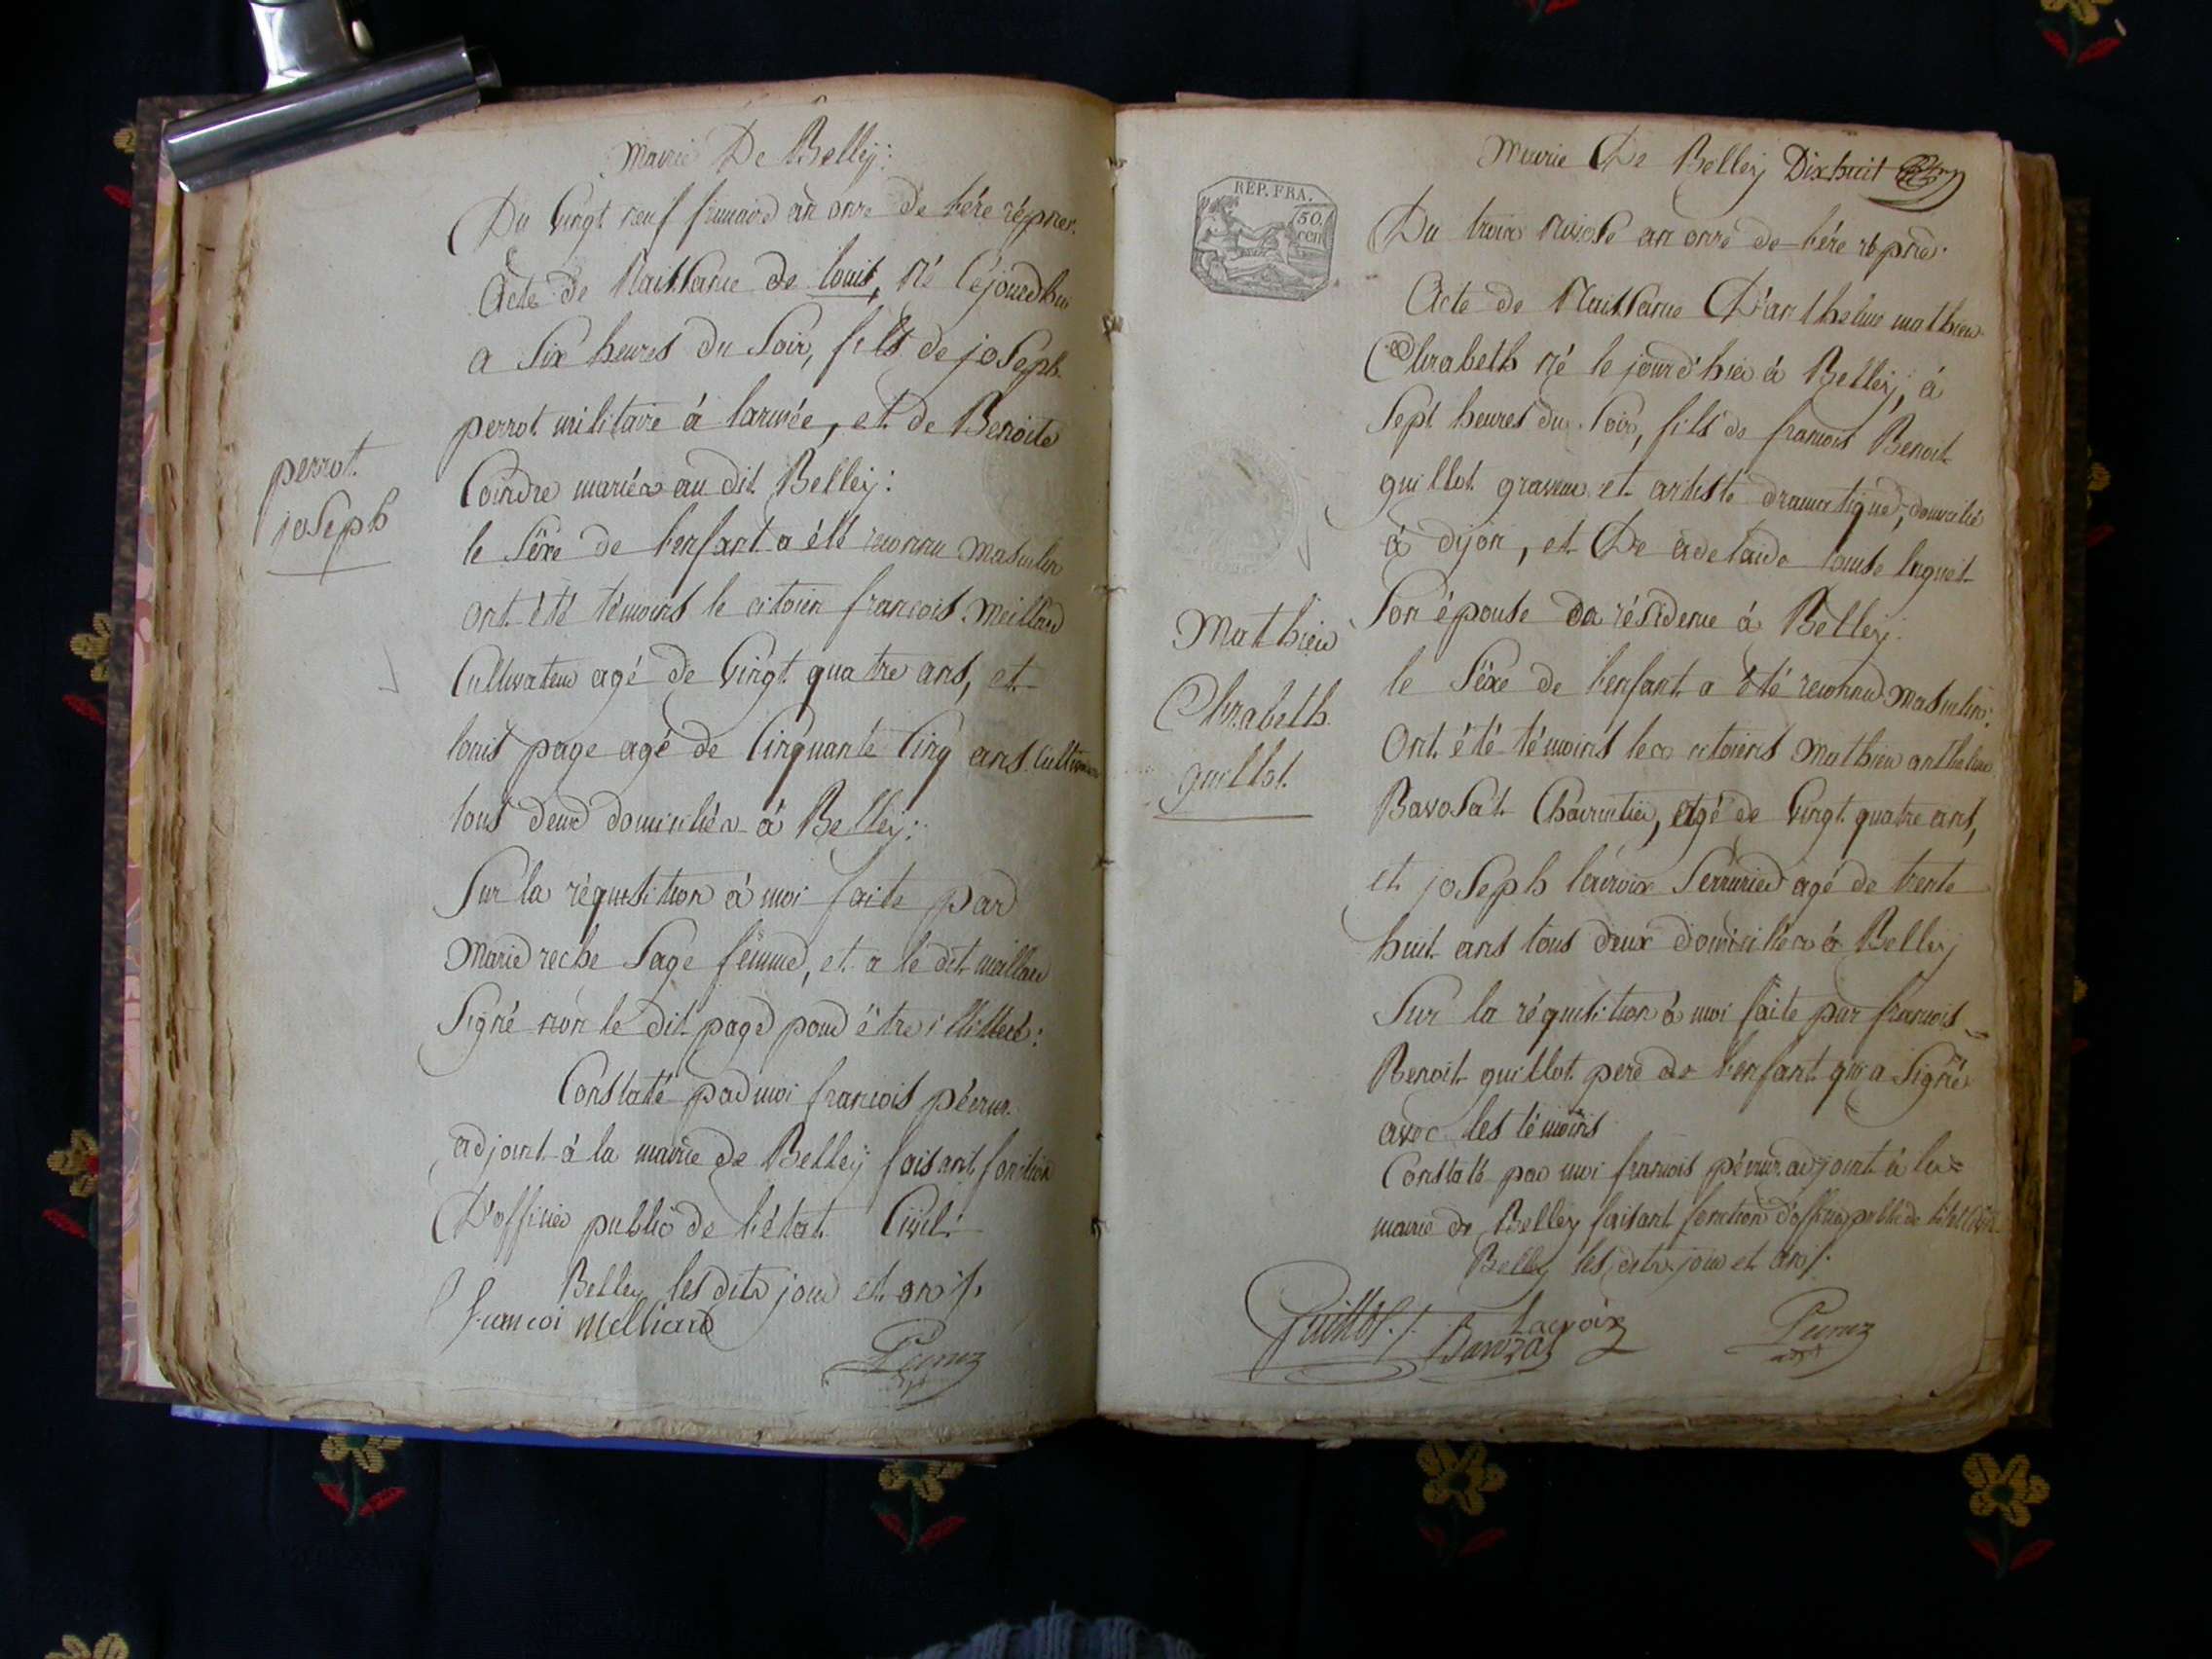 Mairie De Belleÿ:
Du Vingt neuf frimaire an onze de l'ére répner.
Acte de Naissance de louis, né cejourdhui
a Six heures du Soir, fils de joseph
perrot militaire á larmée, et de Benoite
Coindre mariés au dit Belleÿ:
perrot
joseph
le Séxe de l'enfant a été reconnu masculin
ont été témoins le citoien françois Meilland
Cultivateur agé de Vingt quatre ans, et
louis page agé de Cinquante Cinq ans Cultivateur
tous deux domiciliés á Belleÿ:
Sur la réquisition á moi faite par
Marie reche Sage femme, et a le dit meilland
Signé non le dit page pour étre illitteré:
Constaté par moi françois péruz
adjoint á la mairie de Belleÿ faisant fonction
D'officier public de l'état Civil:
Belley les dits jour et an
francoi Melliard
Peruz
adjt
Mairie De Belleÿ Dix huit
REP. FRA.
50.
cen
Du trois nivose an onze de l'ére répne.
Acte de Naissance D'anthelme mathieu
Elizabeth né le jourd'hier á Belleÿ, á
Sept heures du Soir, fils de françois Benoit
guillot graveur et artiste dramatique, domicilié
á dijon, et De adelaide louise luquet
Son épouse de résidence á Belleÿ:
Mathieu
Elizabeth
guillot
le Séxe de l'enfant a été reconnu masculin:
Ont été témoins les citoiens Mathieu anthelme
Bavosat Charpentier, agé de Vingt quatre ans,
et joseph lacroix Serrurier agé de trente
huit ans tous deux domiciliés á Belleÿ
Sur la réquisition á moi faite par françois
Benoit guillot pere de l'enfant qui a Signé
avec les témoins
Constaté par moi françois péruz adjoint á la
mairie de Belley faisant fonction d'officier public de l'état Civil
Belley les dits jour et an
Guillot
Lacroix
Bavozat
Peruz
adjt